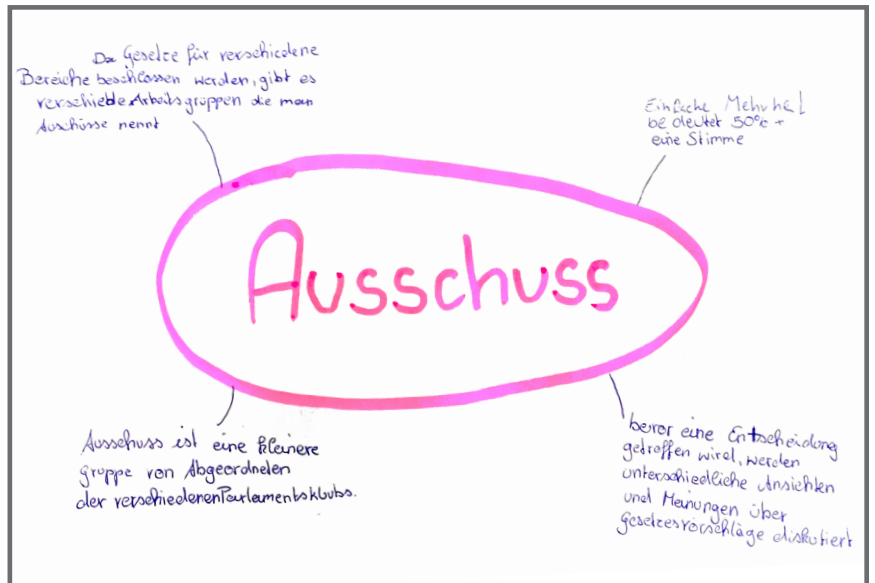 Da Gesetze für verschiedene
Bereiche beschlossen werden, gibt es
verschiedde Arbeitsgruppen die man
Auschüsse nennt
Einfache Mehrheit
bedeutet 50% +
eine Stimme
Ausschuss
Ausschuss ist eine kleinere
gruppe von Abgeordneten
der verschiedenen Parlamentsklubs.
bevor eine Entscheidung
getroffen wird, werden
unterschiedliche Ansichten
und Meinungen über
Gesetzesvorschläge diskutiert